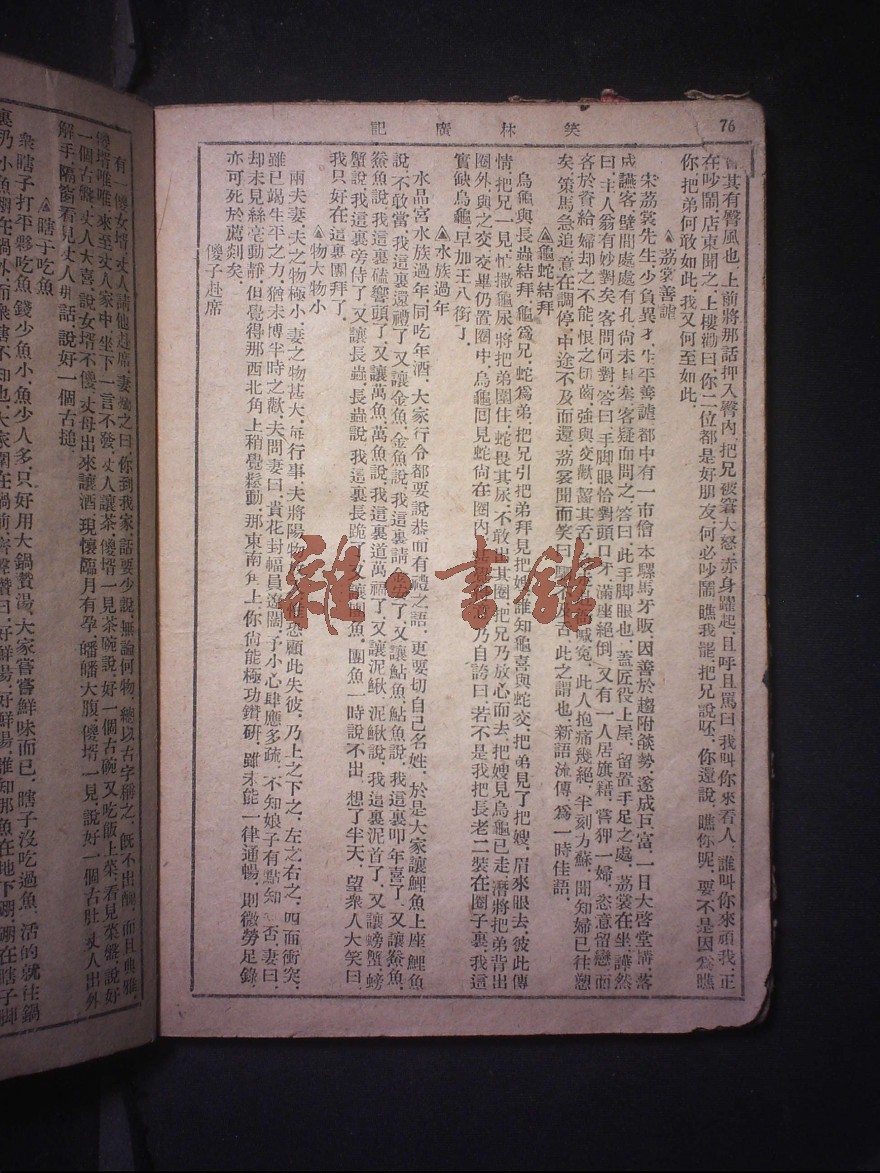 76
笑林廣記
在吵鬧店東聞之上樓勸曰你二位都是好朋友何必吵鬧瞧我罷把兄說呸你還說瞧你呢要不是因爲瞧
你把弟何敢如此我又何至如此
▲荔裳善謔
宋荔裳先生少負異才生平善謔都中有一市儈本騾馬牙販因善於趨附燄勢遂成巨富一日大啓堂搆落
成讌客壁間處處有孔尚未塞客疑而問之答曰此手脚眼也蓋匠役上屋留置手足之處荔裳在坐譁然
曰主人翁有妙對矣客問何對答曰手脚眼恰對頭口牙滿座絕倒又有一人居旗籍嘗狎一婦恣意留戀而
客於資給婦却之不能恨之切齒強與交歡齧其舌喊冤此人抱痛幾絕半刻方蘇聞知婦已往愬
矣策馬急追意在調停中途不及而還荔裳聞而笑曰及舌此之謂也新語流傳爲一時佳語
▲龜蛇結拜
烏龜與長蟲結拜龜爲兄蛇爲弟把兄引把弟拜見把嫂誰知龜喜與蛇交把弟見了把嫂眉來眼去彼此傳
情把兄一見忙撒龜尿將把弟圈住蛇畏其尿不敢出其圈把兄乃放心而去把嫂見烏龜已走潛將把弟背出
圈外與之交交畢仍置圈中烏龜回見蛇尚在圈內乃自誇曰若不是我把長老二裝在圈子裏我這
實缺烏龜早加王八銜了
▲水族過年
水晶宮水族過年同吃年酒大家行令都要說恭而有禮之語更要切自己名姓於是大家讓鯉魚上座鯉魚
說不敢當我這裏還禮了又讓金魚金魚說我這裏請金安了又讓鮎魚鮎魚說我這裏叩年喜了又讓鰲魚
鰲魚說我這裏磕響頭了又讓萬魚萬魚說我這裏道萬福了又讓泥鰍泥鰍說我這裏泥首了又讓螃蟹螃
蟹說我這裏旁侍了又讓長蟲長蟲說我這裏長跪了又讓團魚團魚一時說不出想了半天望衆人大笑曰
我只好在這裏團拜了
▲物大物小
兩夫妻夫之物極小妻之物甚大每行事夫將陽物恐顧此失彼乃上之下之左之右之四面衝突
雖已竭生平之力猶未博半時之歡夫問妻曰貴花封幅員遼闊子小心肆應多疏不知娘子有點知否妻曰
却未見絲毫動靜但覺得那西北角上稍覺鬆動那東南角上你尚能極功鑽研雖未能一律通暢則微勞足錄
亦可死於薦剡矣
傻子赴席
有一傻女壻丈人請他赴席妻囑之曰你到我家話要少說無論何物總以古字稱之旣不出醜而且典雅
傻壻唯唯來至丈人家中坐下一言不發丈人讓茶傻壻一見茶碗說好一個古碗又吃飯上菜看見菜盤說好
一個古盤丈人大喜說女壻不傻丈母出來讓酒現懷臨月有孕皤皤大腹傻壻一見說好一個古肚丈人出外
解手隔窗看見丈人那話說好一個古搥
▲瞎子吃魚
衆瞎子打平夥吃魚錢少魚小魚少人多只好用大鍋熬湯大家嘗嘗鮮味而已瞎子沒吃過魚活的就往鍋